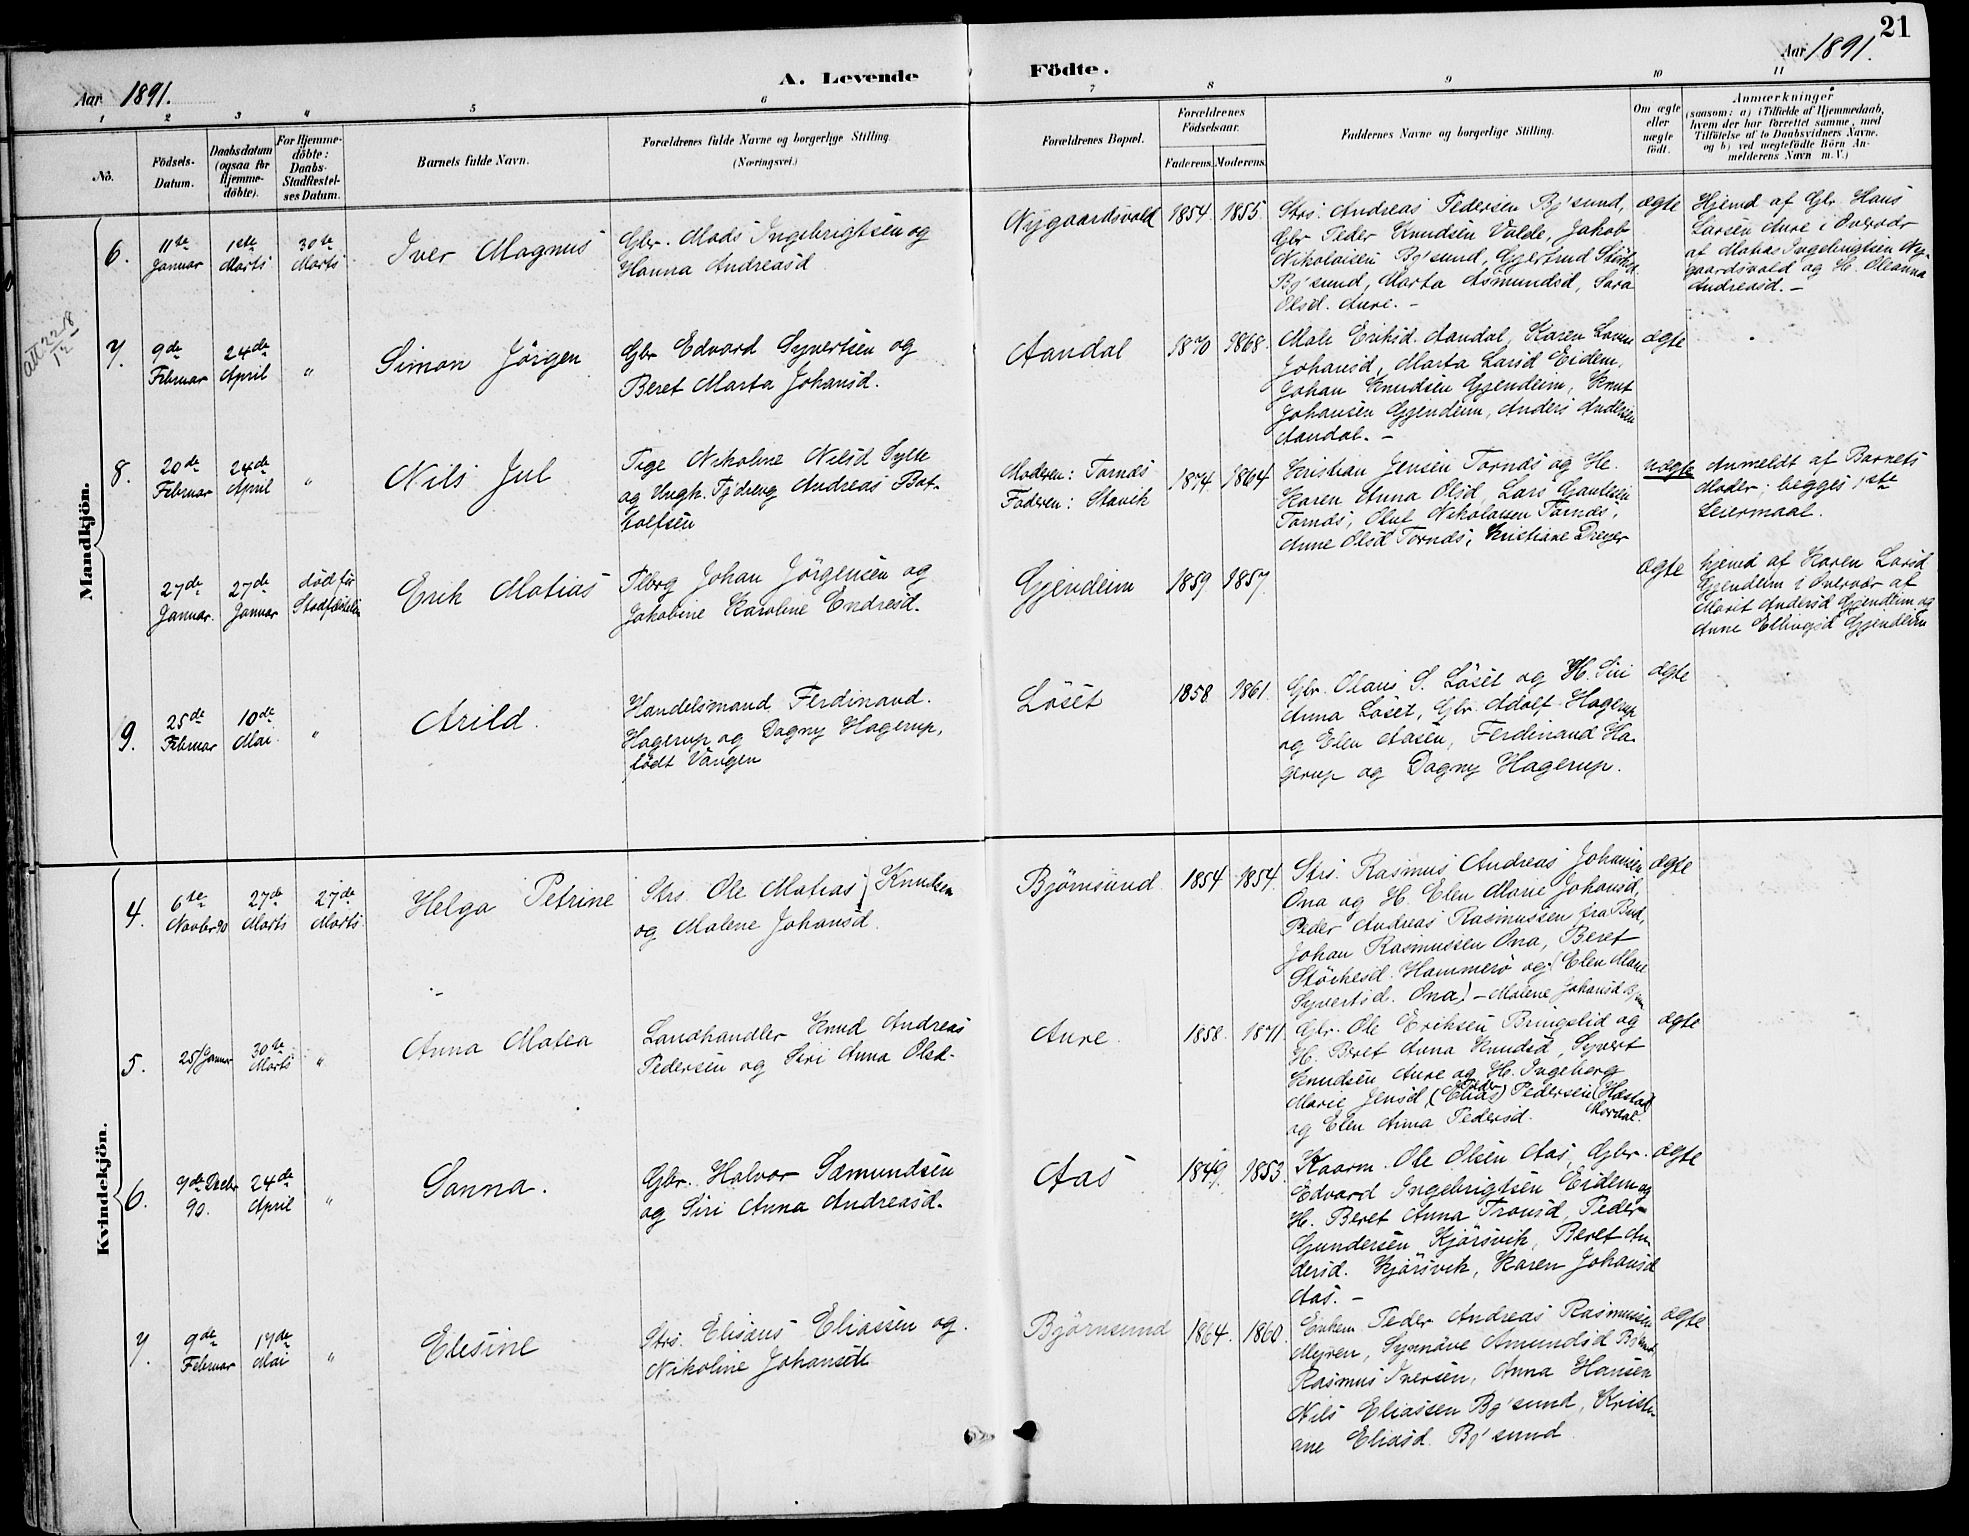 21
Aar 1891.
A. Levende Födte.
Aar 1891.
1 2 3 4 5 6 7 8 9 10 11
No.
Födsels-
Datum.
Daabsdatum
(ogsaa for
Hjemme-
döbte).
For Hjemme-
döbte:
Daabs-
Stadfæstel-
ses Datum.
Barnets fulde Navn.
Forældrenes fulde Navne og borgerlige Stilling.
(Næringsvei.)
Forældrenes Bopæl.
Forældrenes
Födselsaar.
Faderens. Moderens.
Faddernes Navne og borgerlige Stilling.
Om ægte
eller
uægte
födt.
Anmærkninger
(saasom: a) i Tilfælde af Hjemmedaab,
hvem der har forrettet samme, med
Tilföielse af to Daabsvidners Navne,
og b) ved uægtefödte Börn An-
melderens Navn m. V.)
Mandkjön.
6.
11te
Januar
1ste
Marts
30te
Marts
Iver Magnus
Gbr. Mads Ingebrigtsen og
Hanna Andreasd
Nygaardsvold
1854. 1855.
Strs. Andreas Pedersen Bj'sund,
Gbr Peder Knudsen Volde, Jakob
Nikolaisen Bj'sund, Gjertrud
Bj'sund, Marta Asmundsd, Sara
Olsd. Aure. –
ægte
Hjemd af Gbr Hans
Larsen Aure i Overvær
af Matias Ingebrigtsen Ny-
gaardsvold og H. Oleanna
Andreasd. –
7.
9de
Februar
24de
April
"
Simon Jörgen
Gbr Edvard Syvertsen og
Beret Marta Johansd.
Aandal
1870 1868.
Mali Eriksd. Aandal, Karen
Johansd, Marta Larsd Eidem,
Johan Knudsen Gjendem, Knut
Johansen Gjendem, Anders Andersen
Aandal. –
ægte
8.
20de
Februar
24de
April
"
Nils Jul
Pige Nikoline Nilsd Sylte
og Ungk. Tj.dreng Andreas Bot-
holfsen
Moderen: Tornæs
Faderen: Stavik
1874. 1864
Kristian Jensen Tornæs og H.
Karen Anna Olsd, Lars Gautesen
Tornæs, Oluf Nikolaisen Tornæs,
Anne Olsd Tornæs, Kristiane Dreyer
uægte
Anmeldt af Barnets
Moder; begges 1ste
Leiermaal.
27de
Januar.
27de
Januar
död før
Stadfæstelsen
Erik Matias
Plbrg Johan Jörgensen og
Jakobine Karoline Endresd.
Gjendem
1859 1857.
Ægte
hjemd af Karen Larsd
Gjendem i Overvær af
Marit Andersd Gjendem og
Anne Ellingsd Gjendem
9.
25de
Februar
10de
Mai
"
Arild.
Handelsmand Ferdinand
Hagerup og Dagny Hagerup,
født Vangen
Löset
1858 1861.
Gbr. Olaus S. Löset og H. Siri
Anna Löset, Gbr. Adolf Hagerup
og Elen Aasen, Ferdinand Ha-
gerup og Dagny Hagerup.
ægte
Kvindekjön.
4.
6te
Novbr 90
27de
Marts
27de
Marts
Helga Petrine
Strs. Ole Matias Knudsen
og Malene Johansd.
Björnsund
1854 1854.
Strs. Rasmus Andreas Johansen
Ona og H. Elen Marie Johansd,
Peder Andreas Rasmussen fra Bud,
Johan Rasmussen Ona, Beret
Störkesd. Hammerö og (Elen Marie
Syvertsd. Ona) – Malene Johansd
ægte
5.
25/Januar
30te
Marts
"
Anna Matea
Landhandler Knud Andreas
Pedersen og Siri Anna Olsd.
Aure
1858. 1871.
Gbr. Ole Eriksen Bringslid og
H. Beret Anna Knudsd, Syvert
Knudsen Aure og H. Ingeborg
Marie Jensd, (Elias) Peder Pedersen (Hastad)
og Elen Anna Pedersd. Mordal.
ægte
6.
9de Decbr
90.
24de
April
"
Sanna.
Gbr. Halvor Sæmundsen
og Siri Anna Andreasd.
Aas
1849. 1853.
Kaarm. Ole Olsen Aas, Gbr.
Edvard Ingebrigtsen Eidem og
H. Beret Anna Tronsd, Peder
Gundersen Kjörsvik, Beret An-
dersd. Kjörsvik, Karen Johansd
Aas. –
ægte
7.
9de
Februar
17de
Mai
"
Elesine
Strs. Elisæus Eliassen og
Nikoline Johansdt
Björnsund
1864. 1860.
Enkem Peder Andreas Rasmussen
Mejren, Synnöve Amundsd
Rasmus Iversen, Anna Hansen
Nils Eliassen Bj'sund, Kristi-
ane Eliasd. Bj'sund
ægte